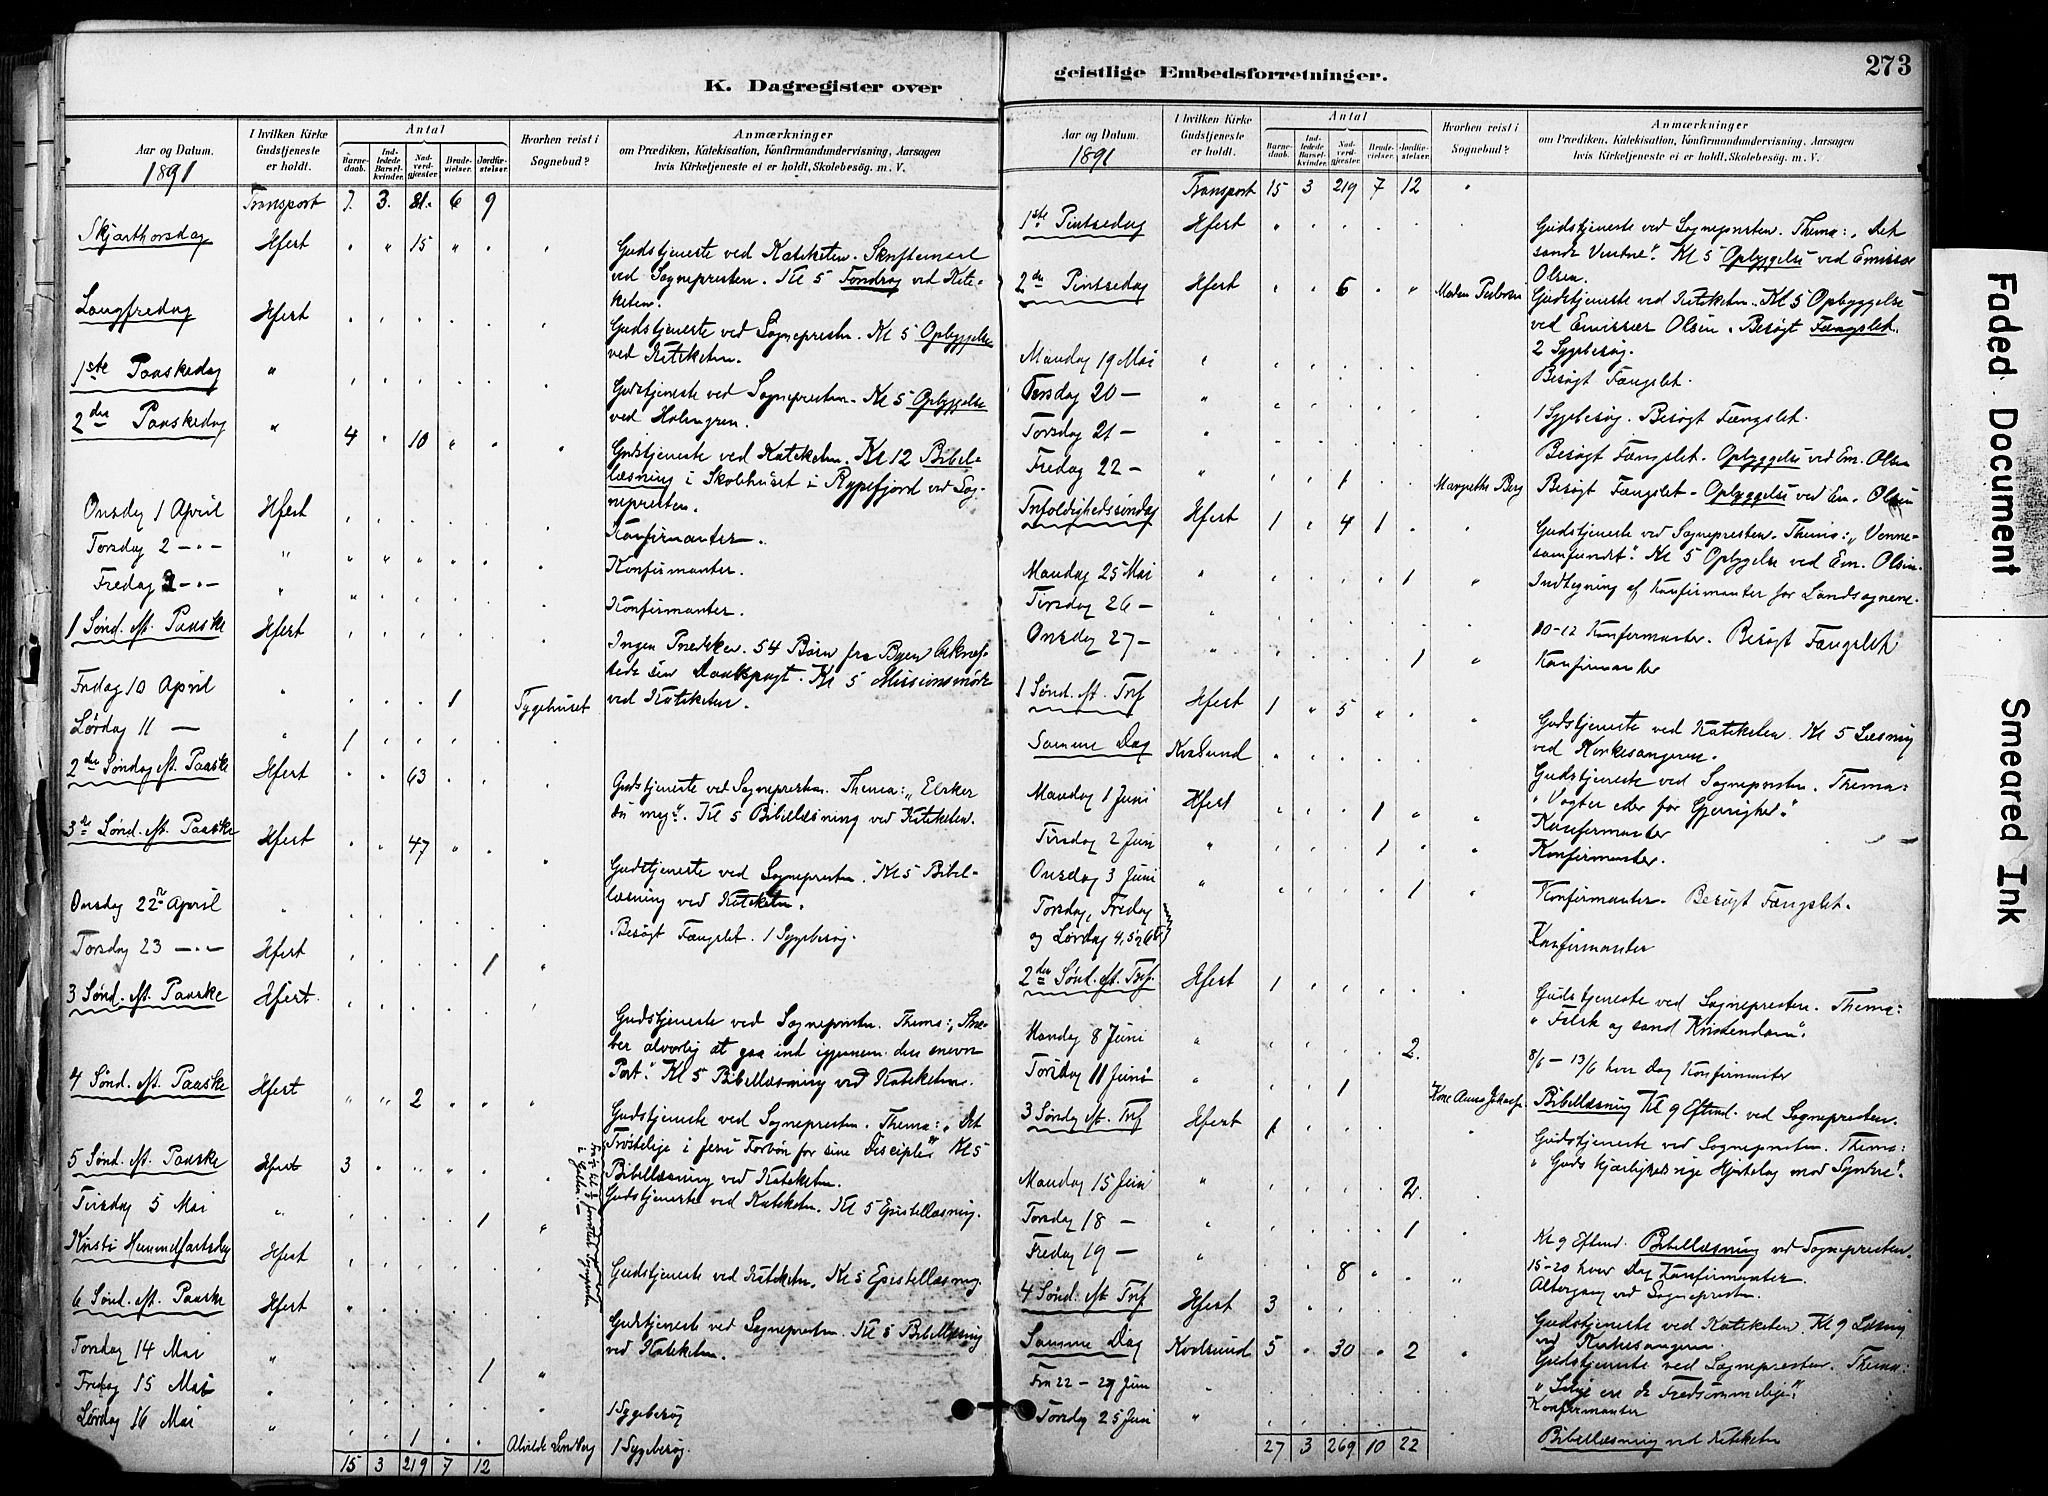 K. Dagregister over
Aar og Datum.
1891
I hvilken Kirke Gudstjeneste er holdt.
Antal
Barnedaab.
Indledede Barselkvinder.
Nadverdgjester
Brudevielser.
Jordfæstelser.
Hvorhen reist i Sognebud?
Anmærkninger
om Prædiken, Katekisation, Konfirmandundervisning, Aarsagen
hvis Kirketjeneste ei er holdt, Skolebesøg. m. V.
Transport 7. 3. 81. 6 9
Skjærthorsdag Hfest " " 15 " " "
Gudstjeneste ved Kateketen. Skriftemaal
ved Sognepresten. Kl 5 Foredrag ved Kate-
keten.
Langfredag Hfest
Gudstjeneste ved Sognepresten. Kl 5 Opbyggelse
ved Kateketen.
1ste Paaskedag "
Gudstjeneste ved Sognepresten. Kl 5 Opbyggelse
ved Holmgren.
2den Paaskedag " 4 " 10 " " "
Gudstjeneste ved Kateketen. Kl 12 Bibel-
læsning i Skolehuset i Rypefjord ved Sog-
nepresten.
Onsdag 1 April Hfest
Konfirmanter.
Torsdag 2 -"- "
Konfirmanter.
Fredag 3 -"- "
Konfirmanter.
1 Sønd. eft. Paaske Hfest
Ingen Prædiken. 54 Børn fra Byen bekræf-
tede sin Daabspagt. Kl 5 Missionsmøde
ved Kateketen.
Fredag 10 April " 1 Sygehuset
Lørdag 11 — " 1
2den Søndag eft. Paaske Hfest " " 63
Gudstjeneste ved Sognepresten. Thema: "Elsker
du meg". Kl 5 Bibellæsning ved Kateketen.
3die Sønd. eft. Paaske Hfest " " 47
Gudstjeneste ved Sognepresten. Kl 5 Bibel-
læsning ved Kateketen.
Onsdag 22 April "
Besøgt Fængslet. 1 Sygebesøg.
Torsdag 23 -"- Hfest 1 "
3 Sønd. eft. Paaske Hfest.
Gudstjeneste ved Sognepresten. Thema: "Stræ-
ber alvorlig at gaa ind igjennem den snevre
Port". Kl 5 Bibellæsning ved Kateketen.
4 Sønd. eft. Paaske Hfest " " 2 " " "
Gudstjeneste ved Sognepresten. Thema: "Det
Trøstelige i Jesu Forbøn for sine Disciple". Kl 5
Bibellæsning ved Kateketen.
5 Sønd. eft. Paaske Hfest 3
Gudstjeneste ved Kateketen. Kl 5 Epistellæsning.
Tirsdag 5 Mai " 1 "
Kristi Himmelfartsdag Hfest
Gudstjeneste ved Kateketen. Kl 5 Epistellæsning.
6 Sønd. eft. Paaske Hfest
Gudstjeneste ved Sognepresten. Kl 5 Bibellæsning
ved Kateketen.
Torsdag 14 Mai " 1 "
Fredag 15 Mai "
1 Sygebesøg
Lørdag 16 Mai " 1 Alvilde
1 Sygebesøg.
15 3 219 7 12
geistlige Embedsforretninger.
273
Aar og Datum.
1891
I hvilken Kirke Gudstjeneste er holdt.
Antal
Barnedaab.
Indledede Barselkvinder.
Nadverdgjester
Brudevielser.
Jordfæstelser.
Hvorhen reist i Sognebud?
Anmærkninger
om Prædiken, Katekisation, Konfirmandundervisning, Aarsagen
hvis Kirketjeneste ei er holdt, Skolebesøg. m. V.
Transport 15 3 219 7 12 "
1ste Pintsedag Hfest
Gudstjeneste ved Sognepresten. Thema: "Det
sande Venture". Kl 5 Opbyggelse ved Emissær
Olsen.
2den Pintsedag Hfest " " 6 " "
Gudstjeneste ved Kateketen. Kl 5 Opbyggelse
ved Emissær Olsen. Besøgt Fængslet.
2 Sygebesøg.
Mandag 19 Mai "
Besøgt Fængslet.
Tirsdag 20 — "
1 Sygebesøg. Besøgt Fængslet.
Torsdag 21 — "
Besøgt Fængslet. Opbyggelse ved Em. Olsen
Fredag 22 — " 1 Margrethe Berg
Besøgt Fængslet. Opbyggelse ved Em. Olsen
Trefoldighedssøndag Hfest 1 " 4 1
Gudstjeneste ved Sognepresten. Thema: "Venne-
samfundet". Kl 5 Opbyggelse ved Em. Olsen.
Mandag 25 Mai " 1 "
Indtegning af Konfirmanter for Landsognene.
Tirsdag 26 — "
10-12 Konfirmanter. Besøgt Fængslet
Onsdag 27 — " 1 "
Konfirmanter
1 Sønd. eft. Tref Hfest 1 " 5 " "
Gudstjeneste ved Kateketen. Kl 5 Læsning
ved Kirkesangeren.
Samme Dag Kvalsund
Gudstjeneste ved Sognepresten. Thema:
"Vogter eder for Gjerrighed."
Mandag 1 Juni Hfest 1 "
Konfirmanter
Tirsdag 2 Juni " 1 "
Konfirmanter.
Onsdag 3 Juni " 1 "
Konfirmanter. Besøgt Fængslet.
Torsdag, Fredag
og Lørdag 4, 5 & 6
Konfirmanter
2den Sønd. eft. Tref. Hfest 1
Gudstjeneste ved Sognepresten. Thema:
"Falsk og sand Kristendom".
Mandag 8 Juni " 2.
8/6 — 13/6 hver Dag Konfirmanter
Torsdag 11 Juni " 1 Kone Anna
Bibellæsning Kl 9 Efterm. ved Sognepresten.
3 Søndag eft. Tref Hfest 1
Gudstjeneste ved Sognepresten. Thema:
"Guds kjærlighedsrige Hjertelag mod Syndere".
Mandag 15 Juni " 2.
Torsdag 18 — " 1
Kl 9 Efterm. Bibellæsning ved Sognepresten.
15-20 hver Dag Konfirmanter.
Fredag 19 — " 8 " " "
Altergang ved Sognepresten.
4 Sønd. eft. Tref Hfest 3
Gudstjeneste ved Kateketen. Kl 9 Læsning
ved Kirkesangeren.
Samme Dag Kvalsund 5 " 30 " 2 "
Gudstjeneste ved Sognepresten. Thema:
"Salige ere de Fredsommelige"
Fra 22 — 27 Juni
Konfirmanter
Torsdag 25 Juni "
Bibellæsning ved Kateketen
27 3 269 10 22
Faded Document
Smeared Ink